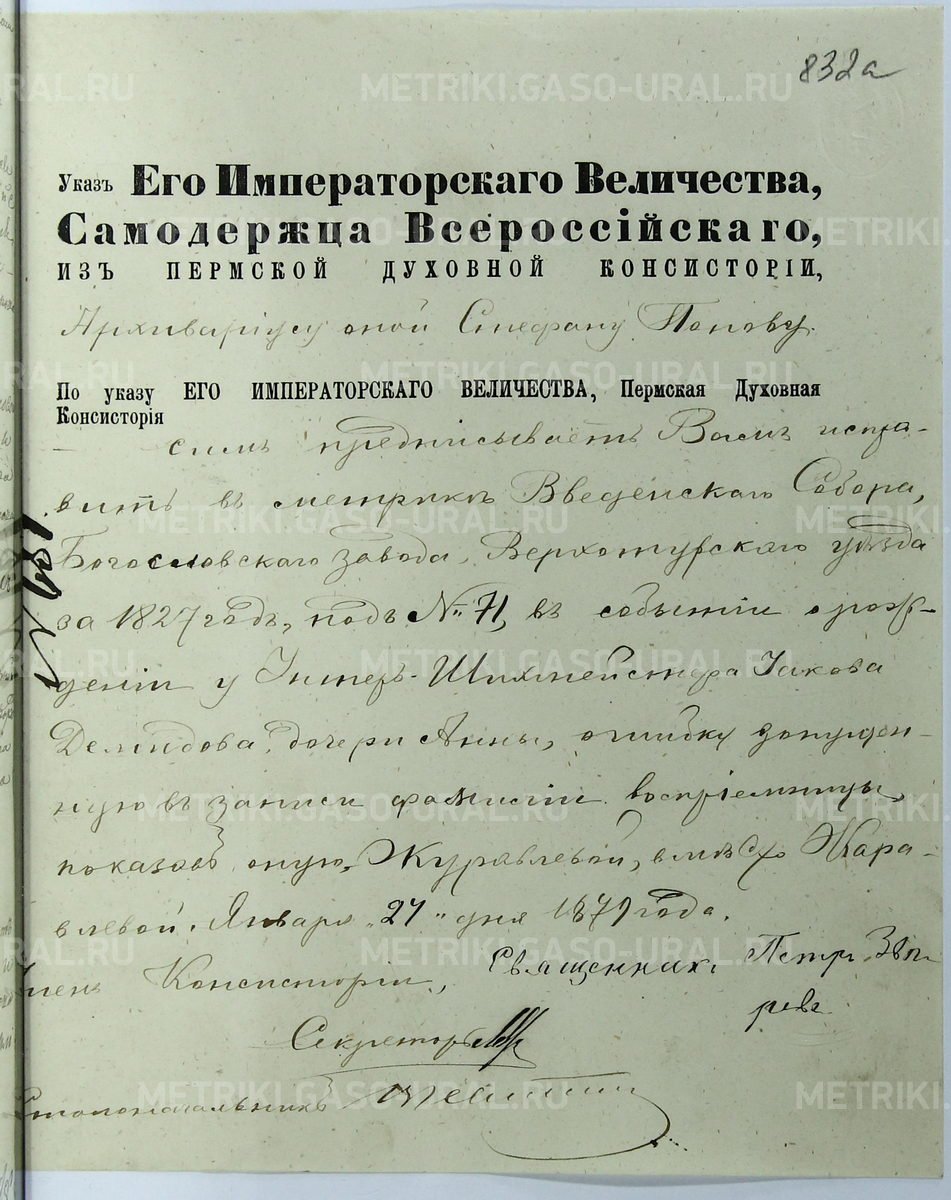 832а
Указъ Его Императорскаго Величества,
Самодержца Всероссійскаго,
ИЗЪ ПЕРМСКОЙ ДУХОВНОЙ КОНСИСТОРІИ,
Архиваріусу оной Стефану Попову.
По указу ЕГО ИМПЕРАТОРСКАГО ВЕЛИЧЕСТВА, Пермская Духовная
Консисторія
симъ предписываетъ Вамъ испра-
вить въ метрикѣ Введенскаго Собора,
Богословскаго завода, Верхотурскаго уѣзда
за 1827 годъ, подъ № 71, въ событіи о рож-
деніи у Унтеръ-Шихтмейстера Іакова
Демидова, дочери Анны, ошибку допущен-
ную въ записи фамиліи воспріемницы,
показавъ оную, Журавлевой, вмѣсто Жара-
влевой. Января „27" дня 1879 года.
Членъ Консисторіи, Священникъ Петръ
Секретарь
Столоначальникъ
METRIKI.GASO-URAL.RU